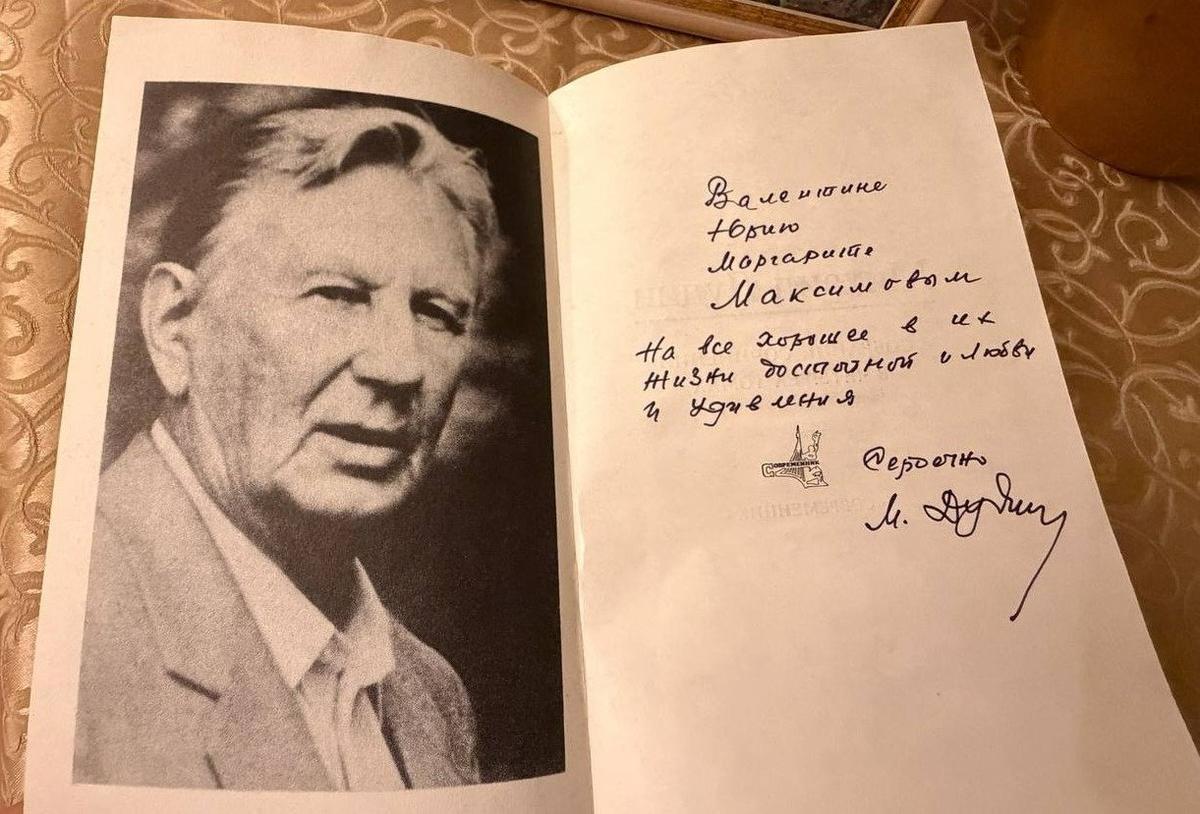 Валентине
Юрию
Маргарите
Максимовым
На все хорошее в их
жизни достойной и любви
и удивления
СОВРЕМЕННИК
Сердечно
М. Дудин